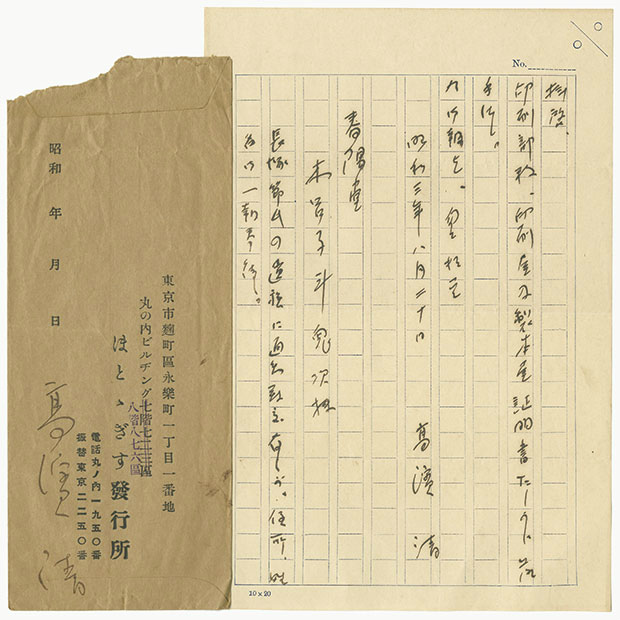 No.
拝啓、
印刷部数、印刷屋及製本屋証明書たしかに落
手
右御報迄、
昭和三年八月二十日 高濱 清
春陽堂
木呂子斗鬼次様
長塚節氏の遺族に 住所、姓
名御一報
10×20
東京市麴町區永樂町一丁目一番地
丸の内ビルヂング七階七二三區
八階八七六區
ほとゝぎす發行所
電話丸ノ内一九五〇番
振替東京二二五〇番
高濱 清
昭和 年 月 日